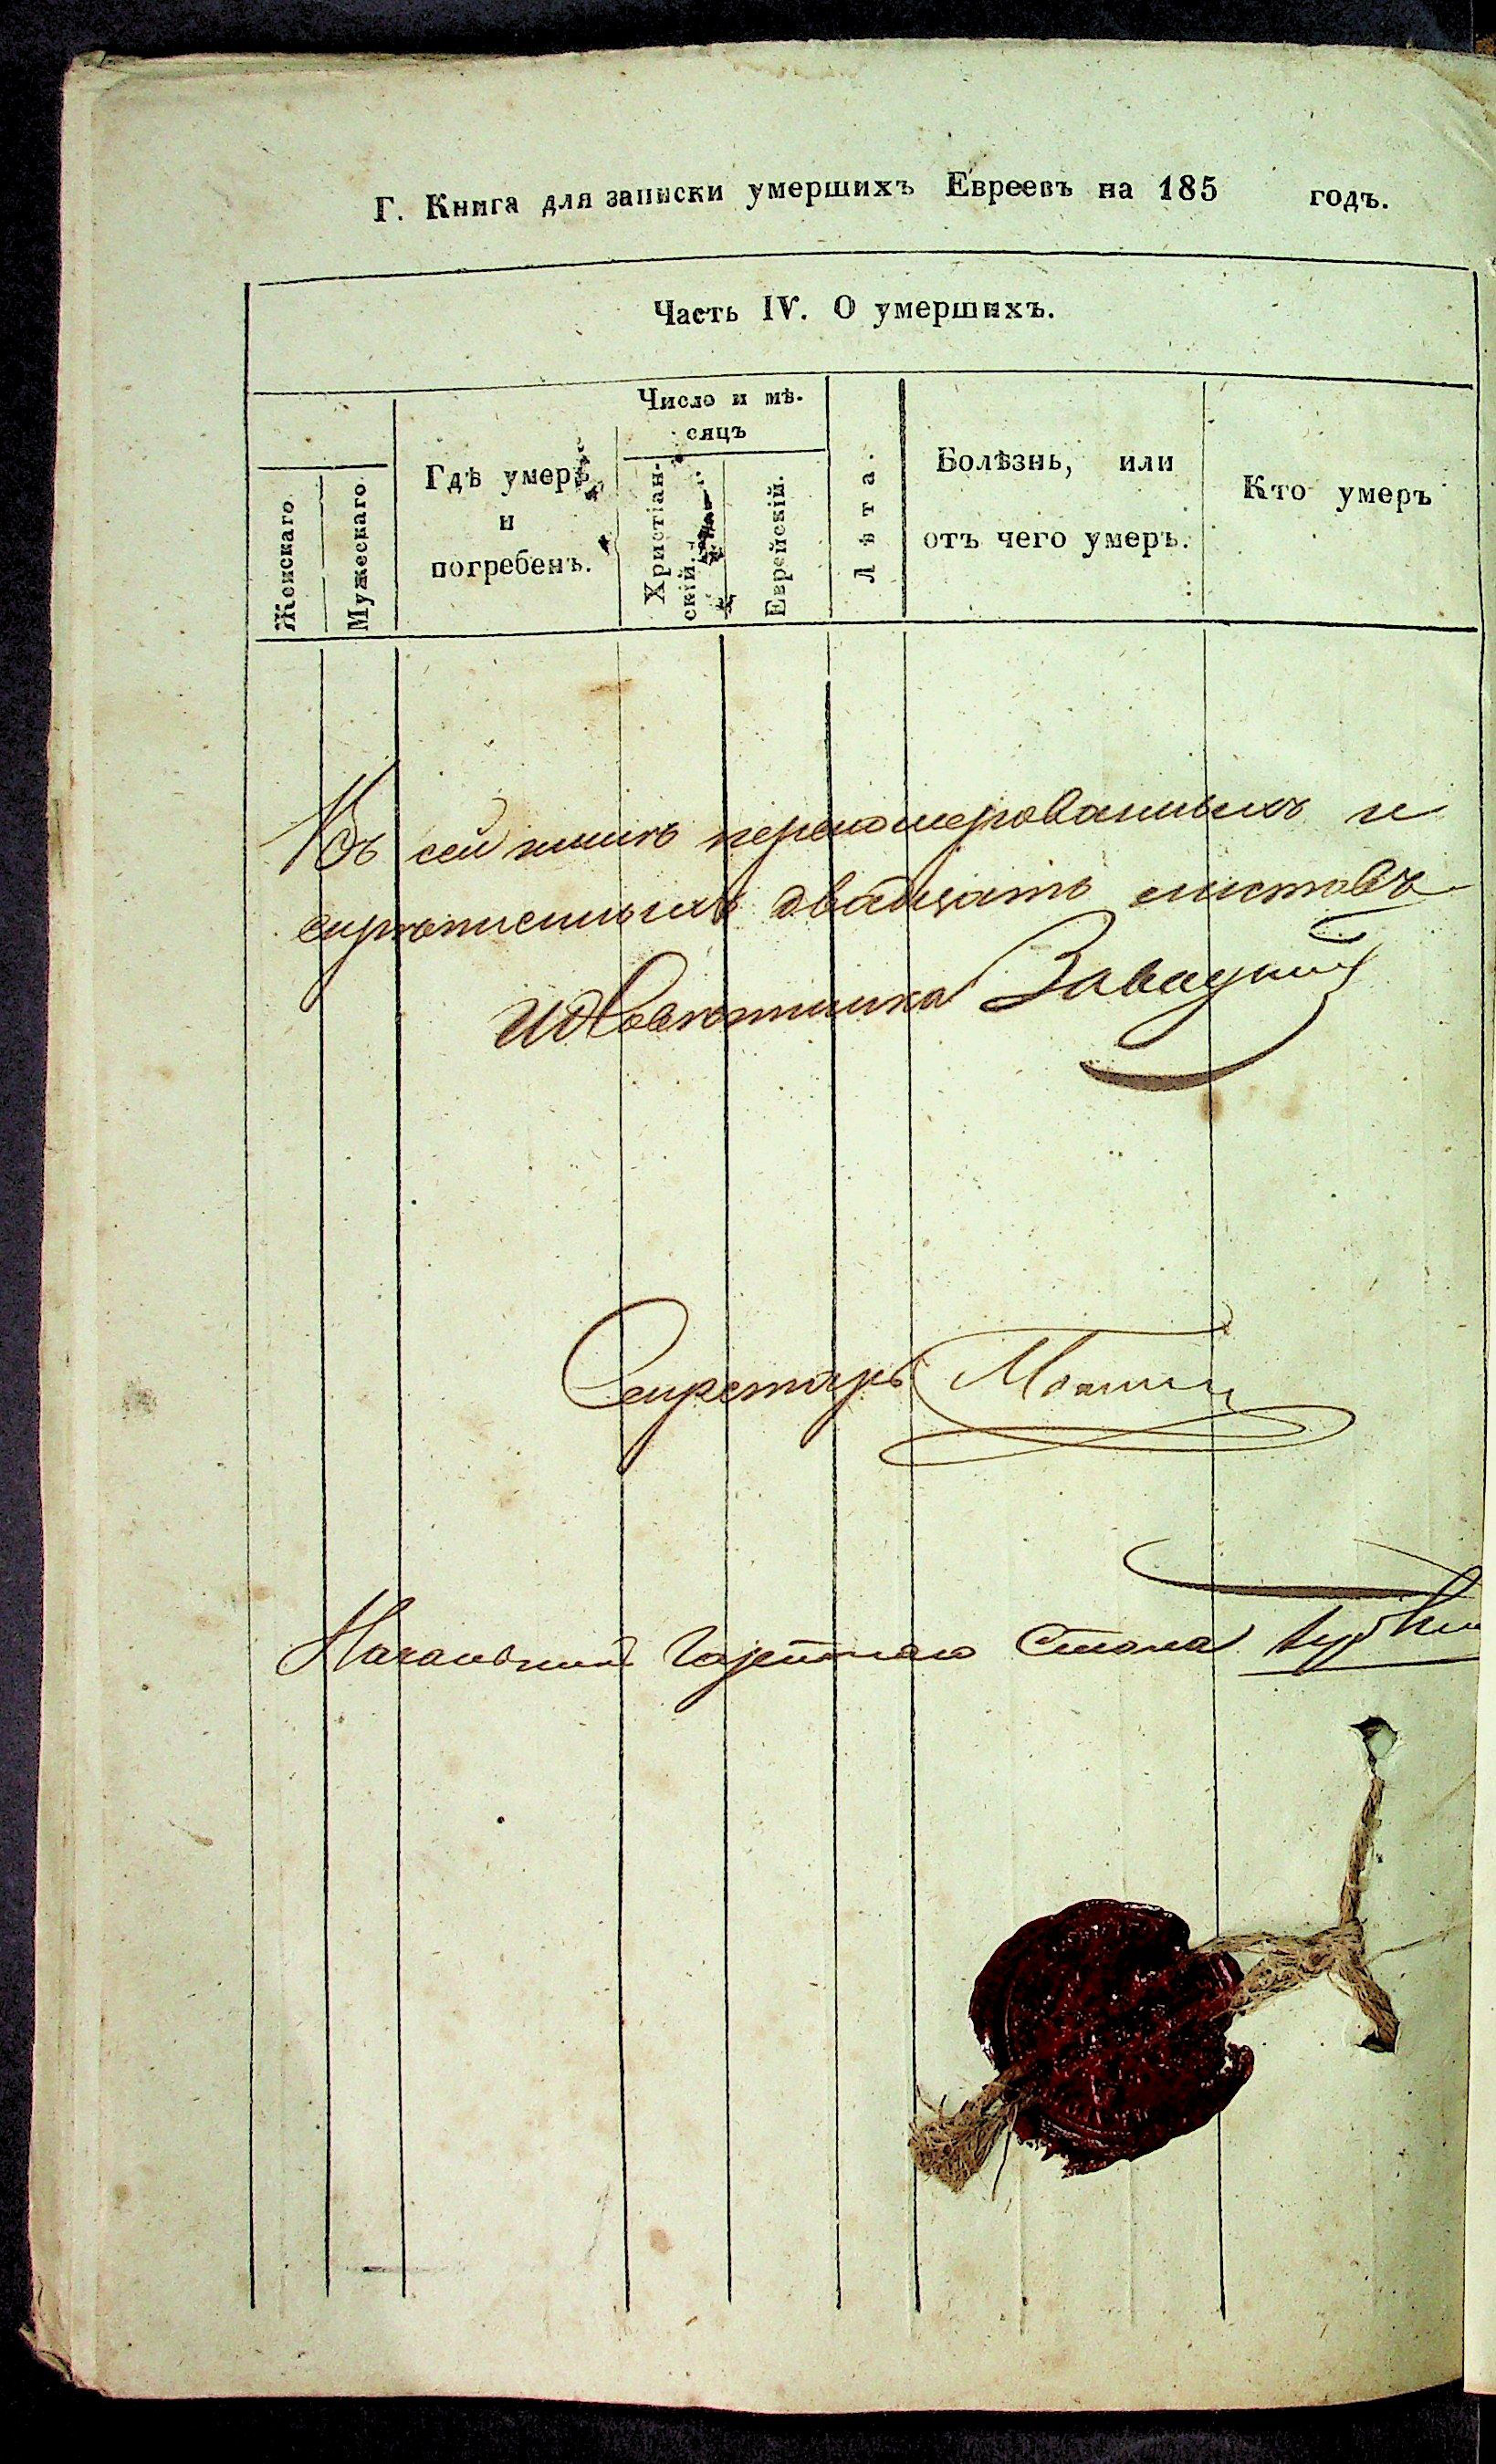 Г. Книга для записки умершихъ Евреевъ на 185 годъ.
Часть IV. О умершихъ.
Женскаго
Мужескаго
Гдѣ умеръ
и
погребенъ.
Число и мѣ-
сяцъ
Христіан-
скій.
Еврейскій.
Лѣта.
Болѣзнь, или
отъ чего умеръ.
Кто умеръ
Въ сей книгѣ переномерованныхъ и
скрѣпленныхъ двадцать листовъ
Завадскій
Секретарь
Начальникъ Стола